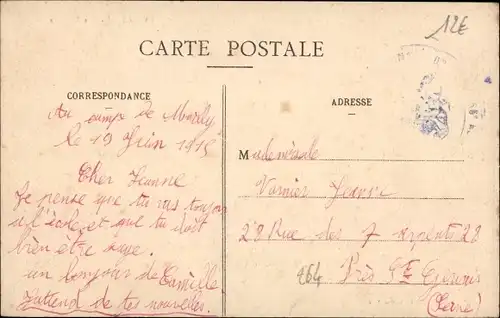 12€
CARTE POSTALE
CORRESPONDANCE
ADRESSE
Au camp de Mailly
le 19 Juin 1915
Cher Jeanne
Je pense que tu vas toujour
a l'écho, et que tu doit
bien etre sage.
un bonjour de Camille
J'attend de tes nouvelles.
Mademoiselle
Varnier Jeanne
28 Rue des 7 arpents 28
264 Près St Gervais
(Seine)